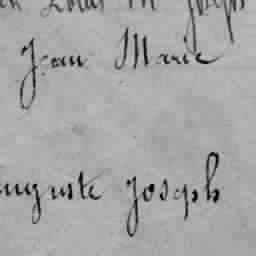 Louis M Joseph
Jean Marie
Auguste Joseph